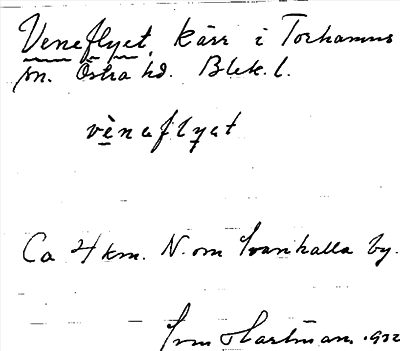 Veneflyet, kärr i Torhamns
sn. Östra hd. Blek. l.
vènaflyat
Ca 4 km. N. om Ivarhalla by.
Hartman 1932